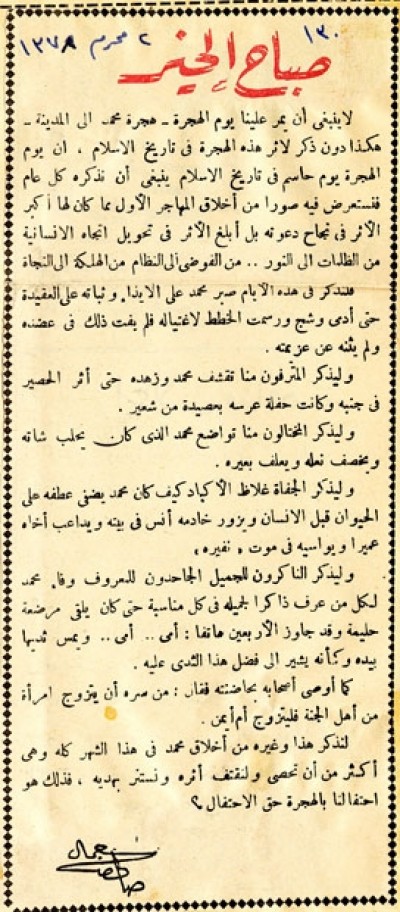 ١٣٠
٢ محرم ١٣٧٨
صباح الخير
لا ينبغى أن يمر علينا يوم الهجرة ـ هجرة محمد الى المدينة ـ
هكذا دون ذكر لاثر هذه الهجرة فى تاريخ الاسلام ، ان يوم
الهجرة يوم حاسم فى تاريخ الاسلام ينبغى أن نذكره كل عام
فنستعرض فيه صورا من أخلاق المهاجر الأول مما كان لها أكبر
الأثر فى نجاح دعوته بل أبلغ الأثر فى تحويل اتجاه الانسانية
من الظلمات الى النور .. من الفوضى الى النظام من الهلكة الى النجاة
فلنذكر فى هذه الأيام صبر محمد على الايذاء وثباته على العقيدة
حتى أدمى وشج ورسمت الخطط لاغتياله فلم يفت ذلك فى عضده
ولم يثنه عن عزيمته .
وليذكر المترفون منا تقشف محمد وزهده حتى أثر الحصير
فى جنبه وكانت حفلة عرسه بعصيدة من شعير .
وليذكر المختالون منا تواضع محمد الذى كان يحلب شاته
ويخصف نعله ويعلف بعيره .
وليذكر الجفاة غلاظ الأكباد كيف كان محمد يضفى عطفه على
الحيوان قبل الانسان ويزور خادمه أنس فى بيته ويداعب أخاه
عميرا ويواسيه فى موت « نغيره »
وليذكر الناكرون للجميل الجاحدون للمعروف وفاء محمد
لكل من عرف ذاكرا لجميله فى كل مناسبة حتى كان يلقى مرضعة
حليمة وقد جاوز الأربعين هاتفا : أمى .. أمى .. ويمس ثديها
بيده وكأنه يشير الى فضل هذا الثدى عليه .
كما أوصى أصحابه بحاضنته فقال : من سره أن يتزوج امرأة
من أهل الجنة فليتزوج أم أيمن .
لنذكر هذا وغيره من أخلاق محمد فى هذا الشهر كله وهى
أكثر من أن تحصى ولنقتف أثره ونستنر بهديه ، فذلك هو
احتفالنا بالهجرة حق الاحتفال ؟